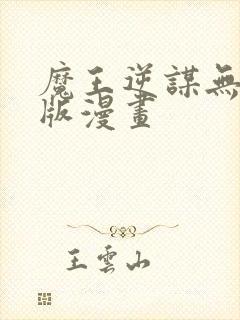 魔王逆謀無
版漫畫
王雲山